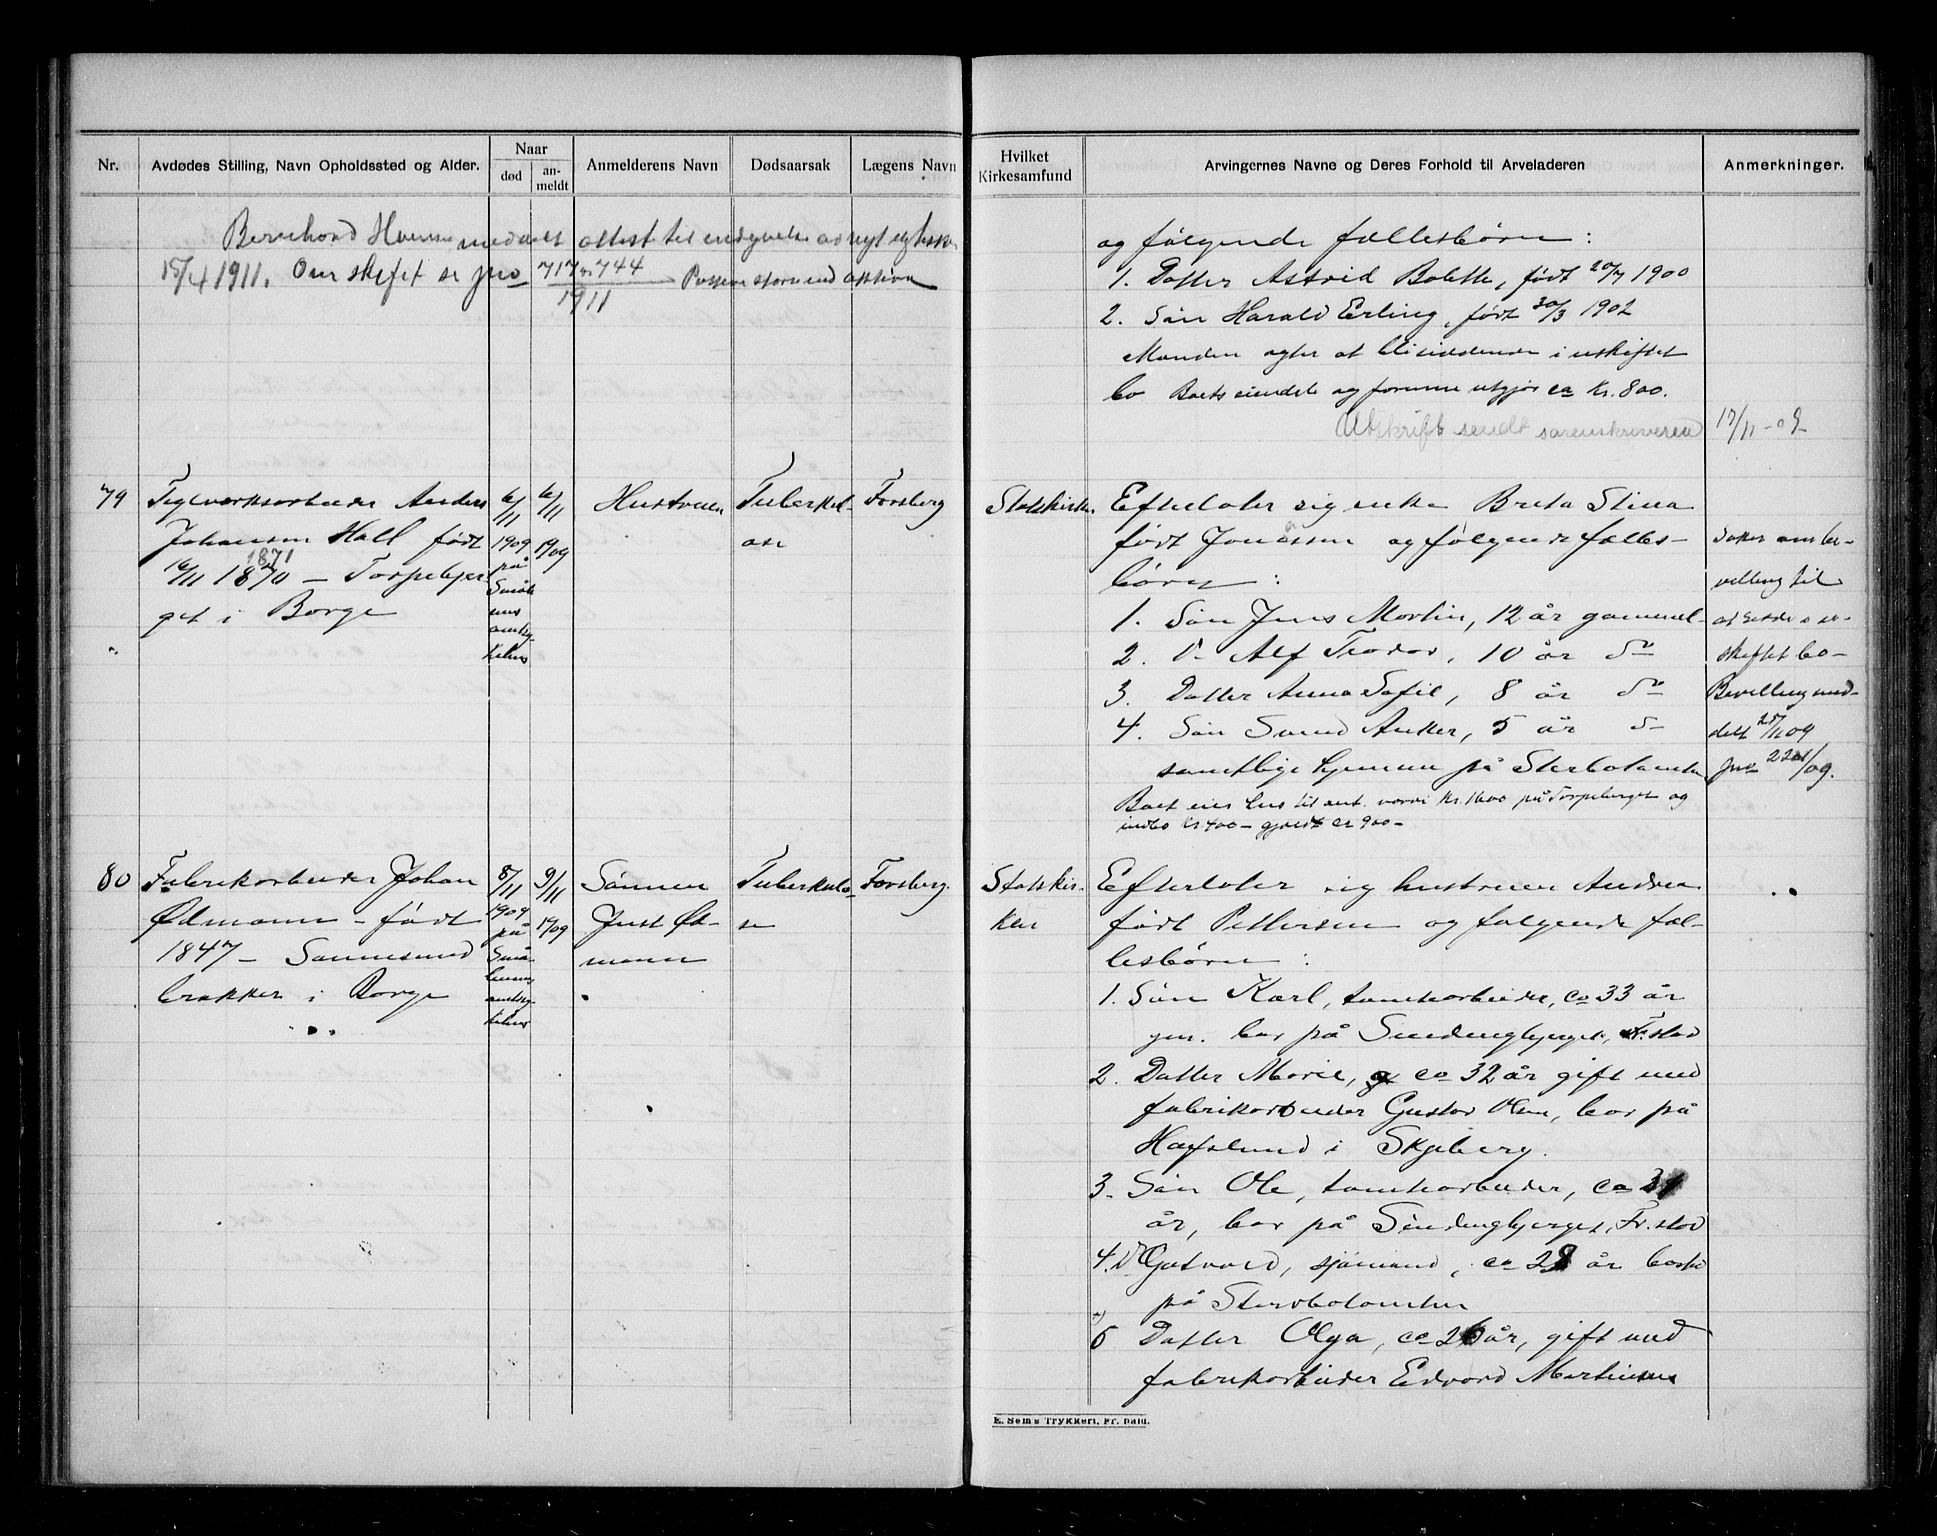 Nr.
Avdødes Stilling, Navn Opholdssted og Alder.
Naar
død
an-
meldt
Anmelderens Navn
Dødsaarsak
Lægens Navn
Hvilket
Kirkesamfund
Arvingernes Navne og Deres Forhold til Arveladeren
Anmerkninger.
Bernhard meddelt attest til indgaaelse av nyt egteskap
15/4 1911. Om skiftet se jno 717 744
1911
Passiva større end aktiva
og følgende fællesbörn :
1. Datter Astrid Bolette, født 20/7 1900
2. Sön Harald Erling, født 30/3 1902
Manden agter at bli siddende i uskiftet
bo Boets eiendele og formue utgjør ca Kr. 800.
Avskrift sendt sorenskriveren
17/11-09
79
Teglverksarbeider Anders
Johansen Hall født
1871
16/11 1870 - Torpebjer-
get i Borge
6/11
1909
på
Smål
ens
amtsy-
kehus
6/11
1909
Hustruen
Tuberkul-
ose
Forsberg
Statskirken
Efterlater sig enke Brita Stina
født Jonassen og følgende fælles-
börn :
1. Sön Jens Martin, 12 år gammel
2. D- Alf Teodor, 10 år do
3. Datter Anna Sofie, 8 år do
4. Sön Svend Anker, 5 år do
samtlige hjemme på Sterbotomten
Boet eier hus til ant. værdi Kr. 1600 på Torpeberget og
indbo Kr 400 - gjæld Kr 900 -
Søker om be-
villing til
at sitte i u-
skiftet bo -
Bevilling med-
delt 25/11 09
jno 2201/09.
80
Fabrikarbeider Johan
Ødmann - født
1847 - Sannesund
brakker i Borge
8/11
1909
på
Små-
lenens
amtsy-
kehus
9/11
1909
Sönnen
Just Öd-
mann
Tuberkulo-
se
Forsberg.
Statskir-
ken
Efterlater sig hustruen Andrea
født Pettersen og følgende fæl-
lesbörn :
1. Sön Karl, tomtearbeider, ca 33 år
gm. bor på Sindingbjerget, Fr.stad
2. Datter Marie, ca 32 år gift med
fabrikarbeider Gustav Olsen, bor på
Hafslund i Skjeberg.
3. Sön Ole, tomtearbeider, ca 31
år, bor på Sindingbjerget, Fr.stad
4. D- Gotvard, sjømand, ca 28 år bosat
på Sterbotomten
5 Datter Olga, ca 26 år, gift med
fabrikarbeider Edvard Martinsen
E. Sem's Trykkeri, Fr. hald.